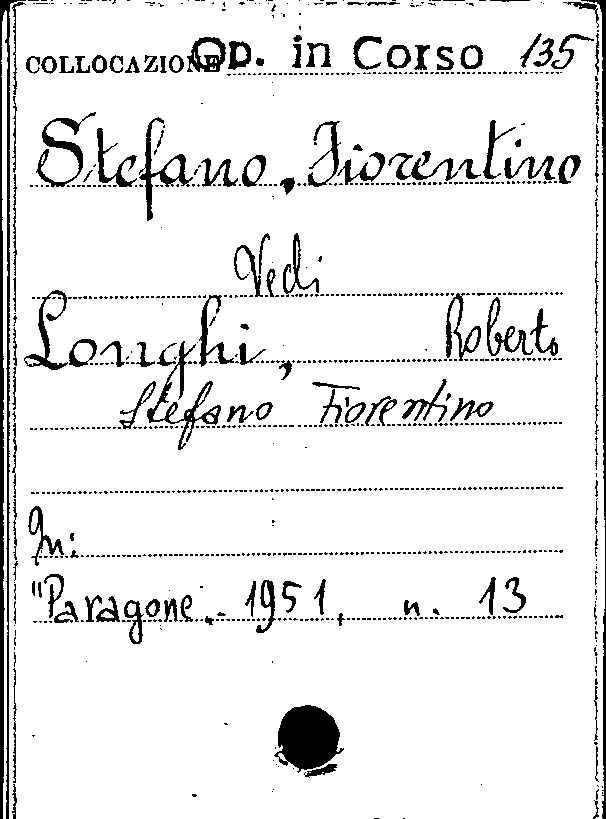 COLLOCAZIONE Op. in Corso 135
Stefano, Fiorentino
Vedi
Longhi, Roberto
Stefano Fiorentino
In:
"Paragone.. 1951, n. 13